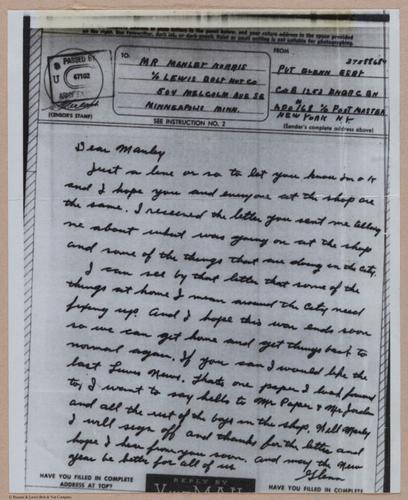 on the right. Use typewriter, dark ink, or dark pencil. Faint or small writing is not suitable for photographing.
PASSED BY
U
67102
ARMY EXAMINER
(CENSOR'S STAMP)
TO:
MR MANLEY MORRIS
% LEWIS BOLT NUT CO
504 MALCOLM AVE SE
MINNEAPOLIS MINN.
SEE INSTRUCTION NO. 2
FROM
PVT GLENN
CO B 1253 ENGRC BN
APO #168 % POST MASTER
NEW YORK NY
(Sender's complete address above)
Dear Manley
Just a line or so to let you know Im o k
and I hope you and everyone at the shop are
the same. I received the letter you sent me telling
me about what was going on at the shop
and some of the things that are doing in the city.
I can see by that letter that some of the
things at home I mean around the city need
fixing up. And I hope this war ends soon
so we can get home and get things back to
normal again. If you can I would like the
last Lewis News. Thats one paper I look forward
to, I want to say hello to Mr Paper & Mr
and all the rest of the boys in the shop. Well Manley
I will sign off and thanks for the letter and
hope I hear from you soon. And may the New
year be better for all of us
Glenn
HAVE YOU FILLED IN COMPLETE
ADDRESS AT TOP?
REPLY BY
V MAIL
HAVE YOU FILLED IN COMPLETE
ADDRESS AT TOP?